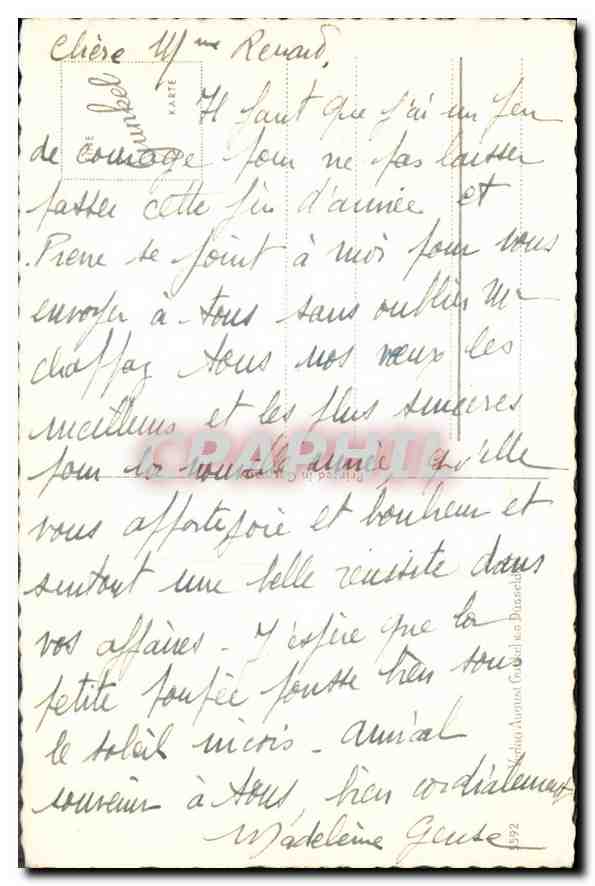 Chère Mme Renard,
Il faut que j'ai un peu
de courage pour ne pas laisser
passer cette fin d'année et
Pierre se joint à moi pour vous
envoyer à tous sans oublier Mr
chaffaz tous nos vœux les
meilleurs et les plus sincères
pour la nouvelle année, qu'elle
vous apporte joie et bonheur et
surtout une belle réussite dans
vos affaires - J'espère que la
petite poupée pousse bien sous
le soleil niçois - amical
souvenir à tous, bien cordialement
Madeleine
KARTE
Printed in
Verlag August Gunkel Düsseldorf
CPAPHIL